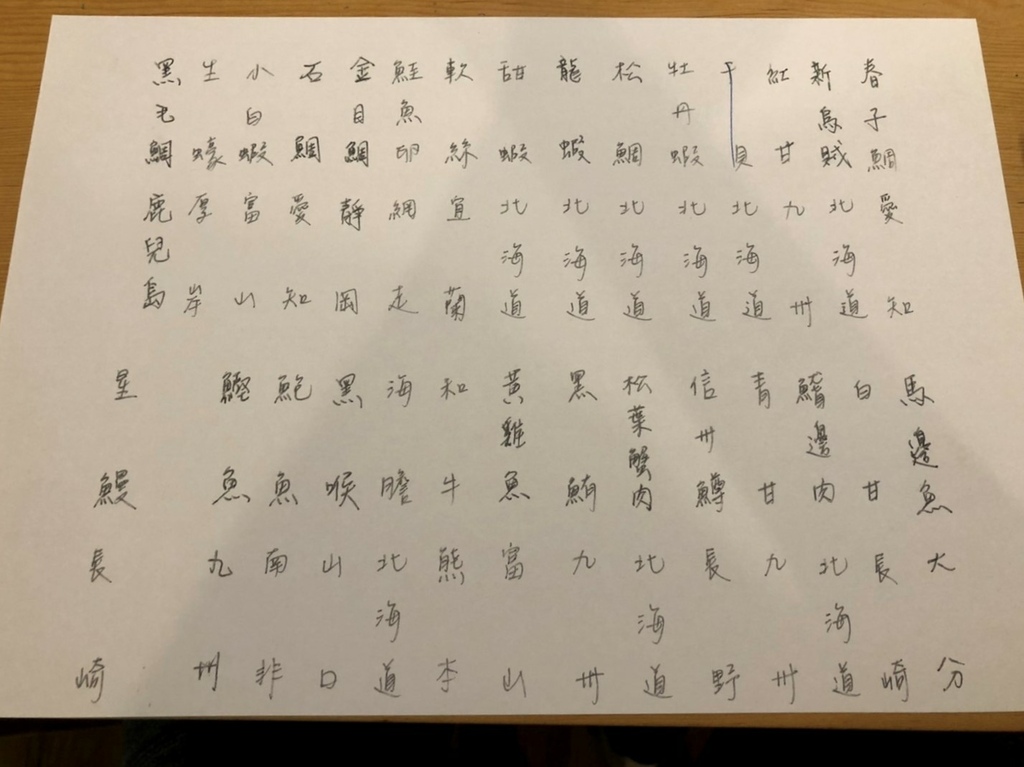 春子鯛 愛知
新烏賊 北海道
紅甘 九州
干貝 北海道
牡丹蝦 北海道
松鯛 北海道
龍蝦 北海道
甜蝦 北海道
軟絲 宜蘭
鮭魚卵 網走
金目鯛 靜岡
石鯛 愛知
小白蝦 富山
生蠔 厚岸
黑毛鯛 鹿兒島
馬邊魚 大分
白甘 長崎
鰭邊肉 北海道
青甘 九州
信州鱒 長野
松葉蟹肉 北海道
黑鮪 九州
黃雞魚 富山
和牛 熊本
海膽 北海道
黑喉 山口
鮑魚 南非
鰹魚 九州
星鰻 長崎